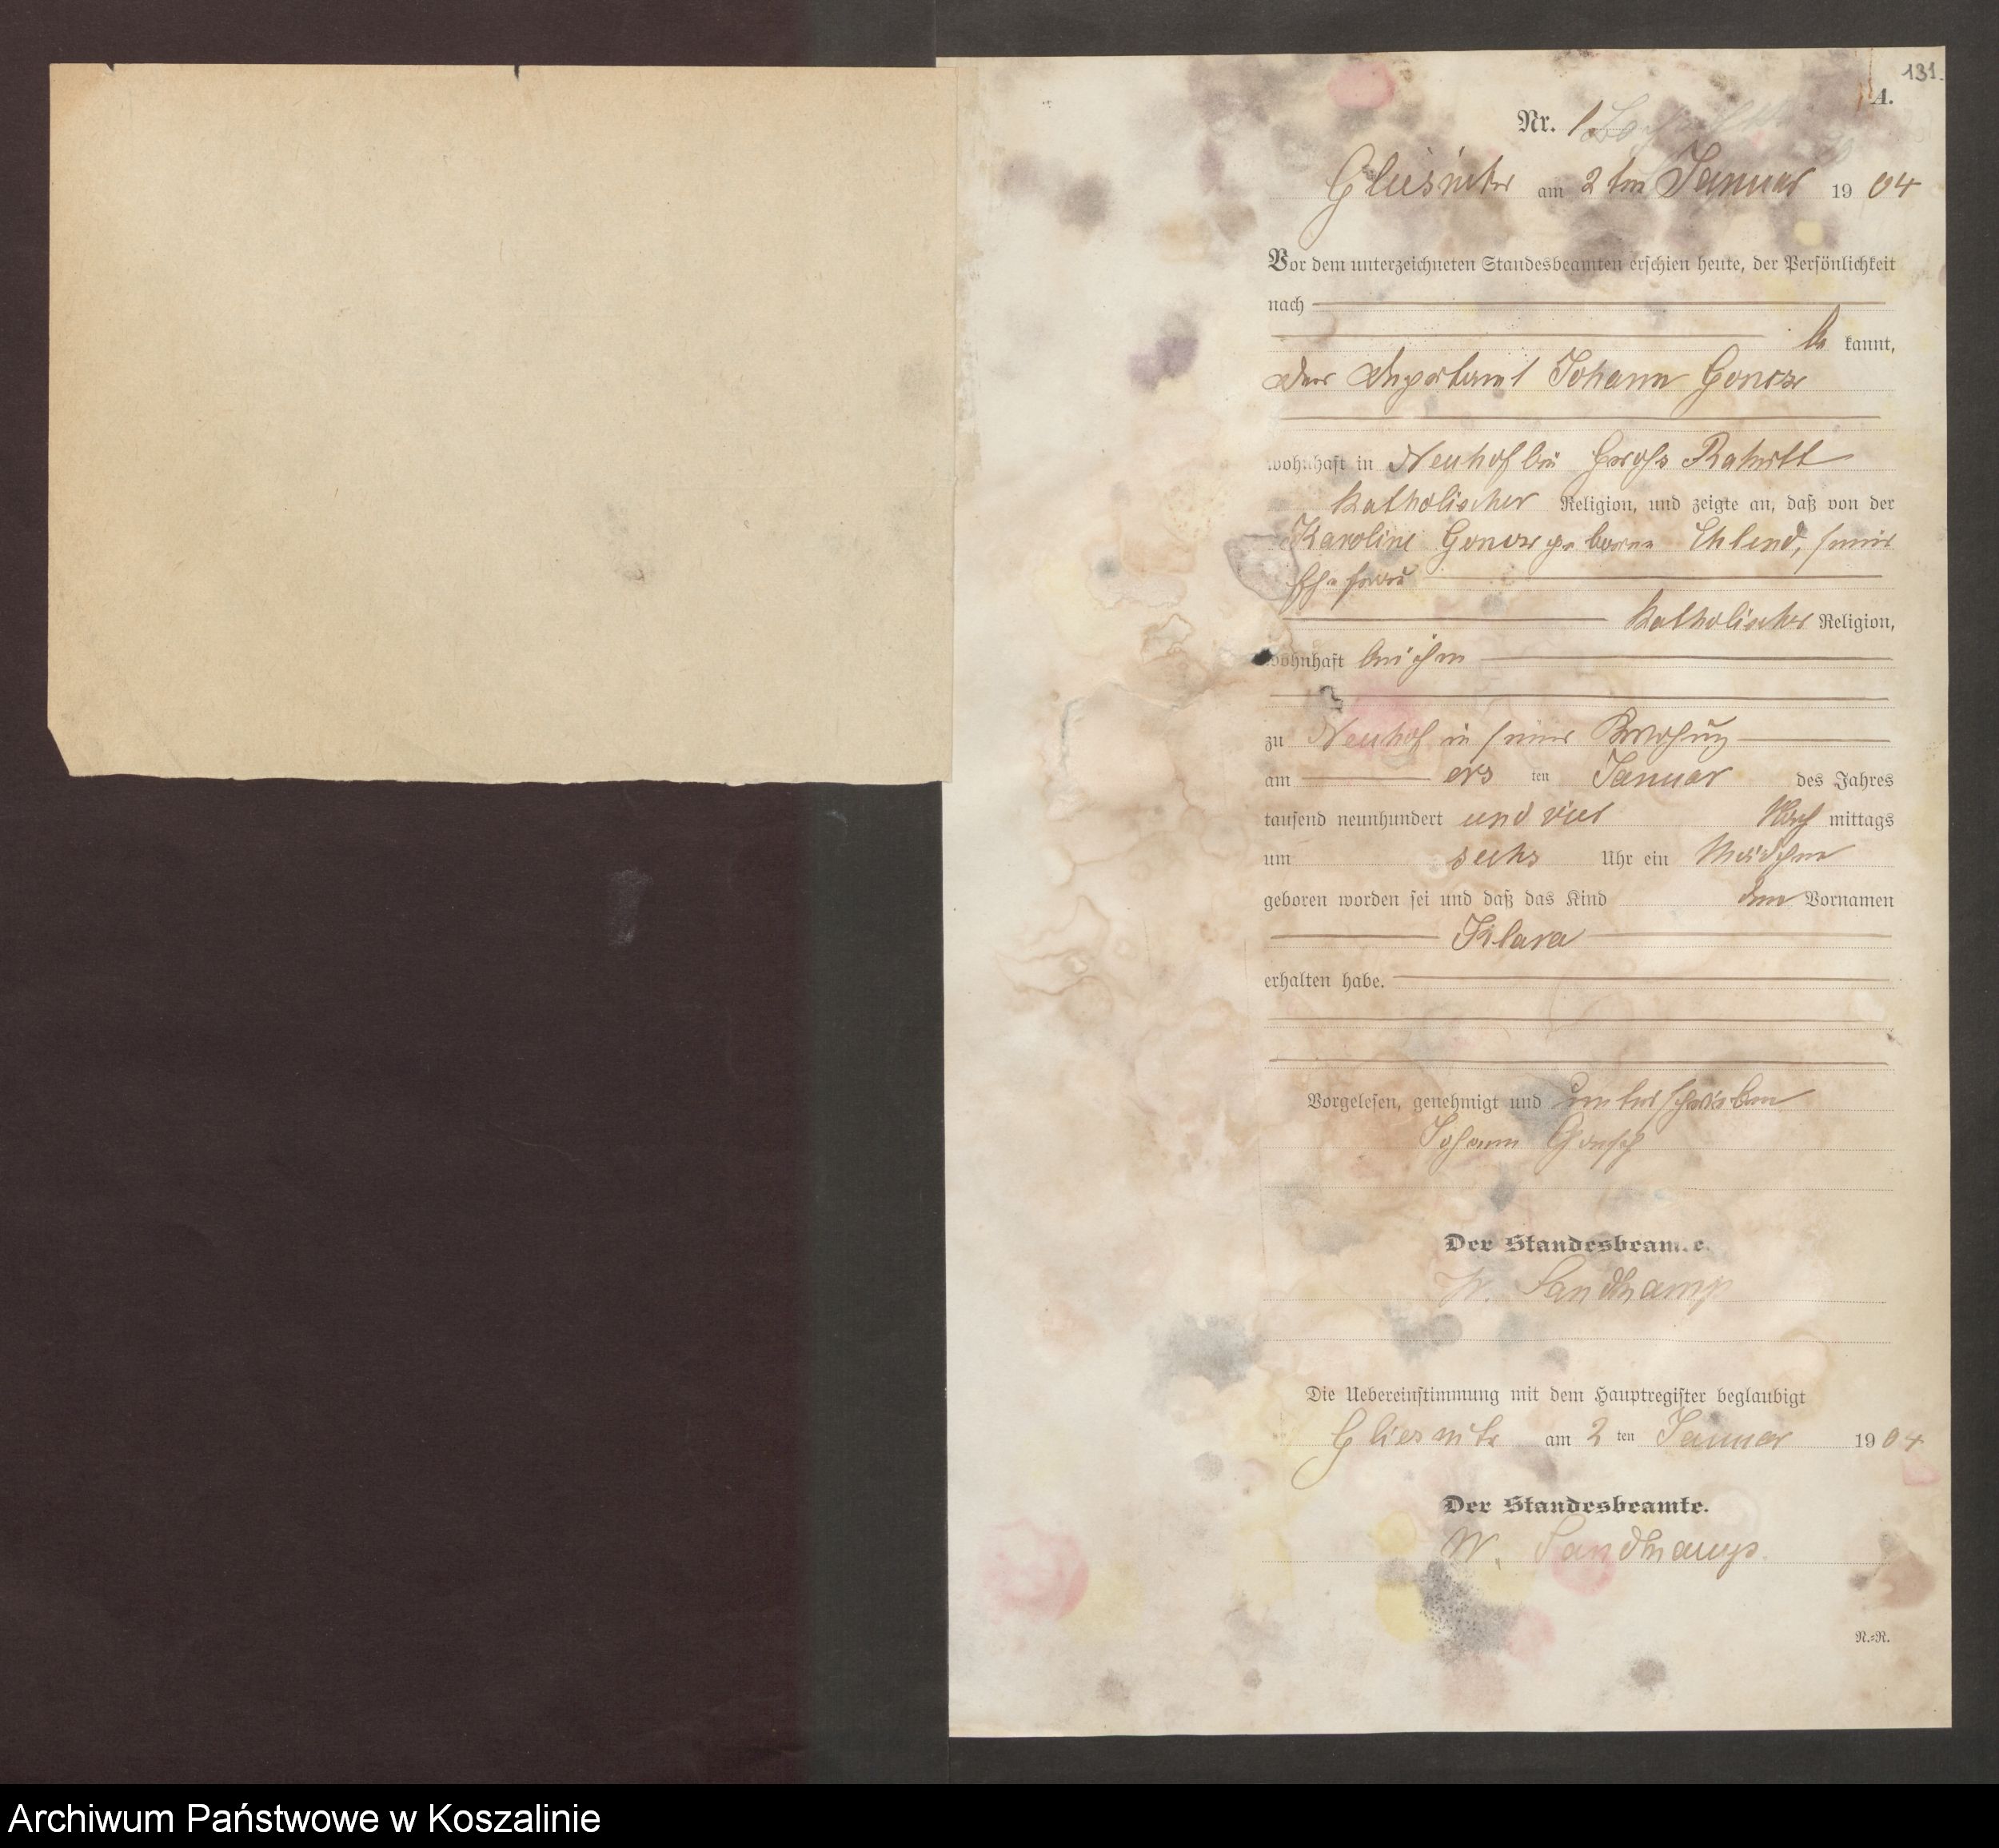 131.
A.
Nr. 1.
Gliesnitz am 2ten Januar 1904
Vor dem unterzeichneten Standesbeamten erschien heute, der Persönlichkeit
nach
be kannt,
der Deputant Johann
wohnhaft in Neuhof bei Gross
katholischer Religion, und zeigte an, daß von der
Karoline geborne Ehlend, seiner
Ehefrau
katholischer Religion,
wohnhaft bei ihm
zu Neuhof in seiner Wohnung
am ersten Januar des Jahres
tausend neunhundert und vier Nachmittags
um sechs Uhr ein Mädchen
geboren worden sei und daß das Kind den Vornamen
Klara
erhalten habe.
Vorgelesen, genehmigt und unterschrieben
Johann
Der Standesbeamte.
W. Sandkamp
Die Uebereinstimmung mit dem Hauptregister beglaubigt
Gliesnitz am 2ten Januar 1904
Der Standesbeamte.
W. Sandkamp.
N.-R.
Archiwum Państwowe w Koszalinie